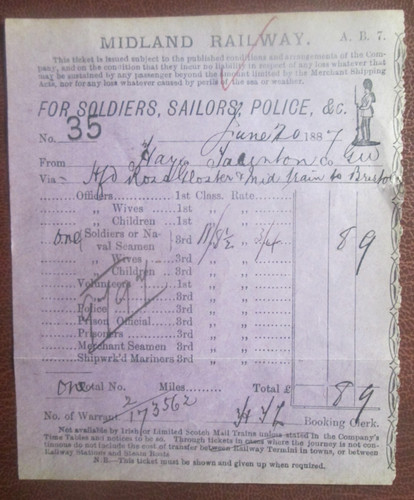 MIDLAND RAILWAY. A. B. 7.
This ticket is issued subject to the published conditions and arrangements of the Com-
pany, and on the condition that they incur no liability in respect of any loss whatever that
may be sustained by any passenger beyond the amount limited by the Merchant Shipping
Acts, nor for any loss whatever caused by perils of the sea or weather.
FOR SOLDIERS, SAILORS, POLICE, &c.
No. 35 June 20 1887
From Hay to
Via Hfd Ross Gloster & Mid train to Bristol
Officers 1st Class. Rate
„ Wives 1st „ „
„ Children 1st „ „
one Soldiers or Na-
val Seamen 3rd „ 3/4 8 9
„ Wives 3rd „ „
„ Children 3rd „ „
Volunteers 1st „ „
„ 3rd „ „
Police 3rd „ „
Prison Official 3rd „ „
Prisoners 3rd „ „
Merchant Seamen 3rd „ „
Shipwrk'd Mariners 3rd „ „
one Total No. Miles Total £ 8 9
No. of Warrant 2/173562 Booking Clerk.
Not available by Irish or Limited Scotch Mail Trains unless stated in the Company's
Time Tables and notices to be so. Through tickets in cases where the journey is not con-
tinuous do not include the cost of transfer between Railway Termini in towns, or between
Railway Stations and Steam Boats
N.B.—This ticket must be shown and given up when required.